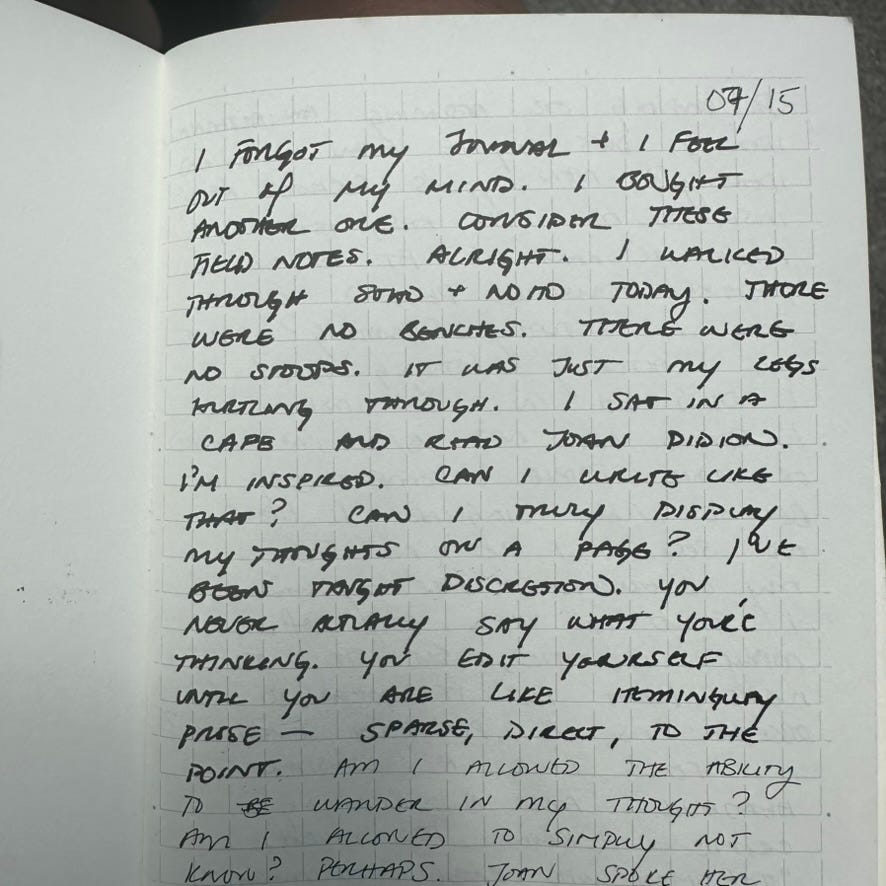 07/15
I FORGOT MY JOURNAL + I FEEL
OUT OF MY MIND. I BOUGHT
ANOTHER ONE. CONSIDER THESE
FIELD NOTES. ALRIGHT. I WALKED
THROUGH SOHO + NOHO TODAY. THERE
WERE NO BENCHES. THERE WERE
NO STOOPS. IT WAS JUST MY LEGS
HURTLING THROUGH. I SAT IN A
CAFE AND READ JOAN DIDION.
I'M INSPIRED. CAN I WRITE LIKE
THAT? CAN I TRULY DISPLAY
MY THOUGHTS ON A PAGE? I'VE
BEEN TAUGHT DISCRETION. YOU
NEVER ACTUALLY SAY WHAT YOU'RE
THINKING. YOU EDIT YOURSELF
UNTIL YOU ARE LIKE HEMINGWAY
PROSE — SPARSE, DIRECT, TO THE
POINT. AM I ALLOWED THE ABILITY
TO WANDER IN MY THOUGHT?
AM I ALLOWED TO SIMPLY NOT
KNOW? PERHAPS. JOAN SPOKE HER